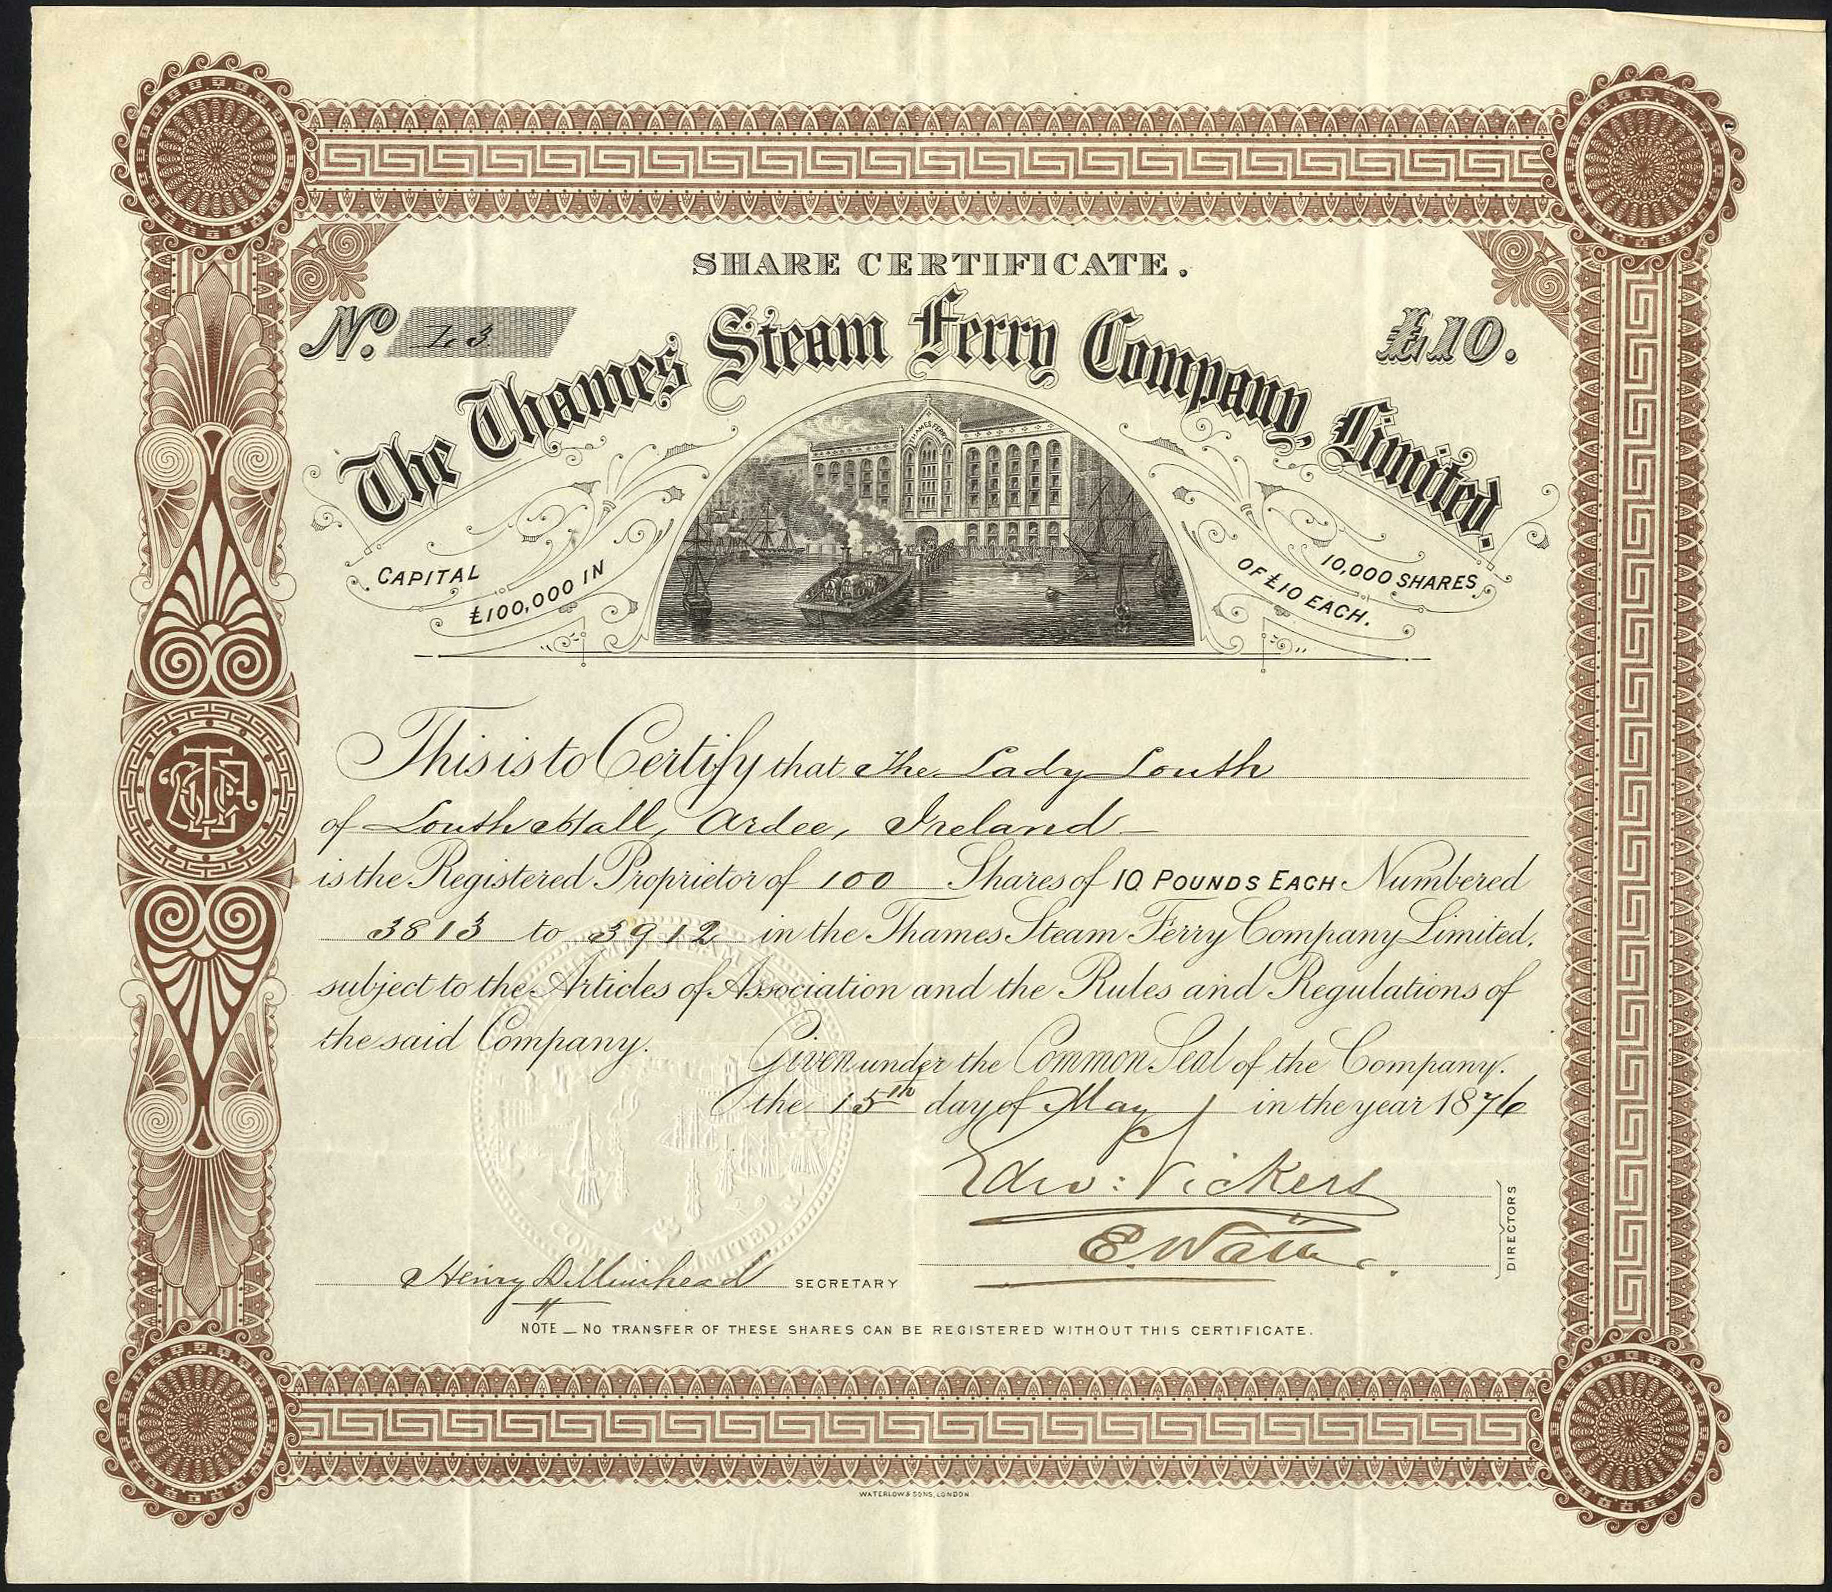 SHARE CERTIFICATE.
No. 
£10.
The Thames Steam Ferry Company, Limited.
THAMES FERRY
CAPITAL
£100,000 IN
10,000 SHARES
OF £10 EACH.
This is to Certify that The Lady Louth
of Louth Hall, Ardee, Ireland
is the Registered Proprietor of 100 Shares of 10 POUNDS EACH Numbered
3813 to 3912 in the Thames Steam Ferry Company Limited,
subject to the Articles of Association and the Rules and Regulations of
the said Company.
Given under the Common Seal of the Company.
the 15th day of May in the year 1876
Edw: Vickers
DIRECTORS
Henry D. Muirhead SECRETARY
COMPANY LIMITED
NOTE _ NO TRANSFER OF THESE SHARES CAN BE REGISTERED WITHOUT THIS CERTIFICATE.
WATERLOW & SONS, LONDON